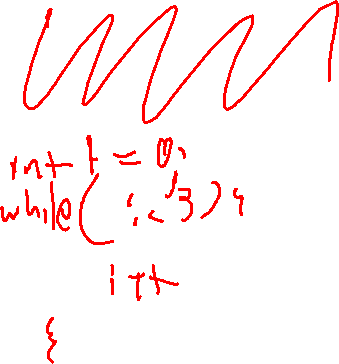 int i = 0;
while( i < 3) {
i++
}